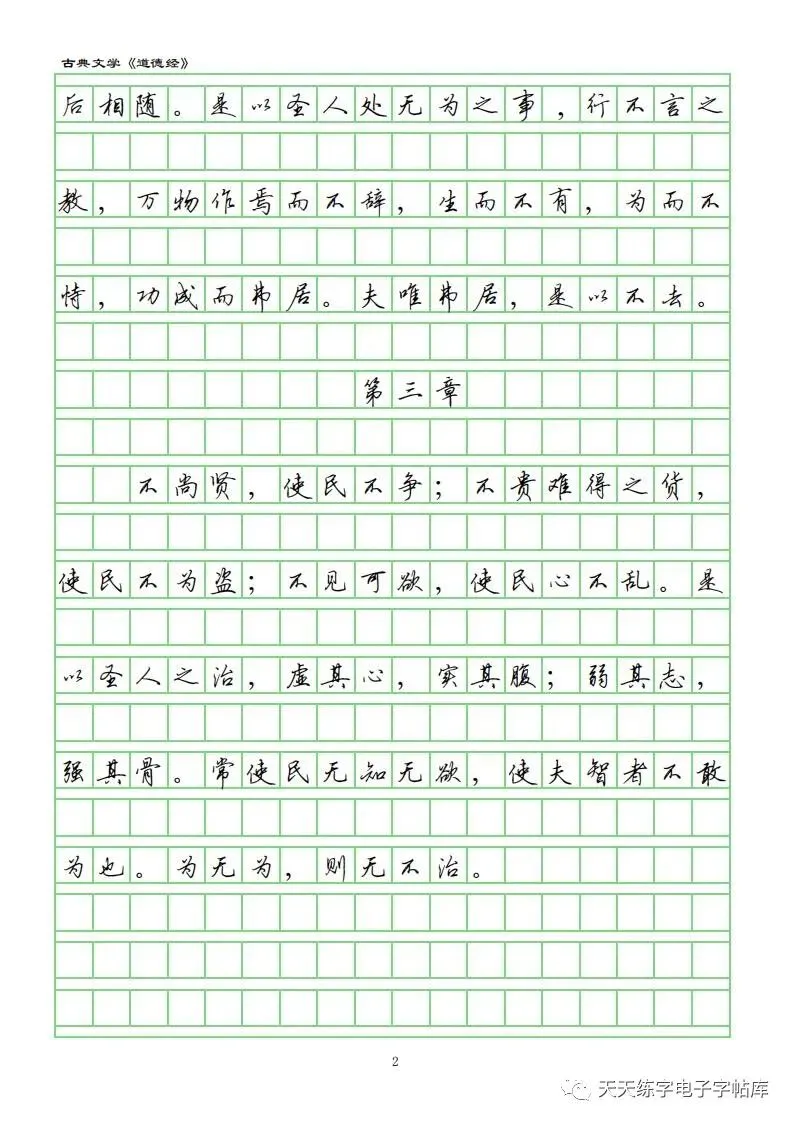 古典文学《道德经》
后相随。是以圣人处无为之事，行不言之
教，万物作焉而不辞，生而不有，为而不
恃，功成而弗居。夫唯弗居，是以不去。
第三章
不尚贤，使民不争；不贵难得之货，
使民不为盗；不见可欲，使民心不乱。是
以圣人之治，虚其心，实其腹；弱其志，
强其骨。常使民无知无欲，使夫智者不敢
为也。为无为，则无不治。
2
天天练字电子字帖库